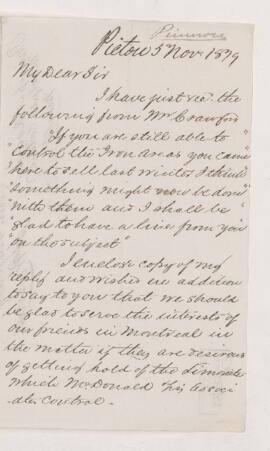 Pictou 5 Nov. 1879
My Dear Sir
I have just rec. the
following from Mr Crawford
"If you are still able to"
"control the Iron Areas you came"
"here to sell last winter I think"
"something might now be done"
"with them and I shall be"
"glad to have a line from you"
"on the subject"
I enclose copy of my
reply and wishes in addition
to say to you that we should
be glad to serve the interests of
our friends in Montreal in
the matter if they are desirous
of getting hold of the Limonite
which McDonald & his Associ
ates control.